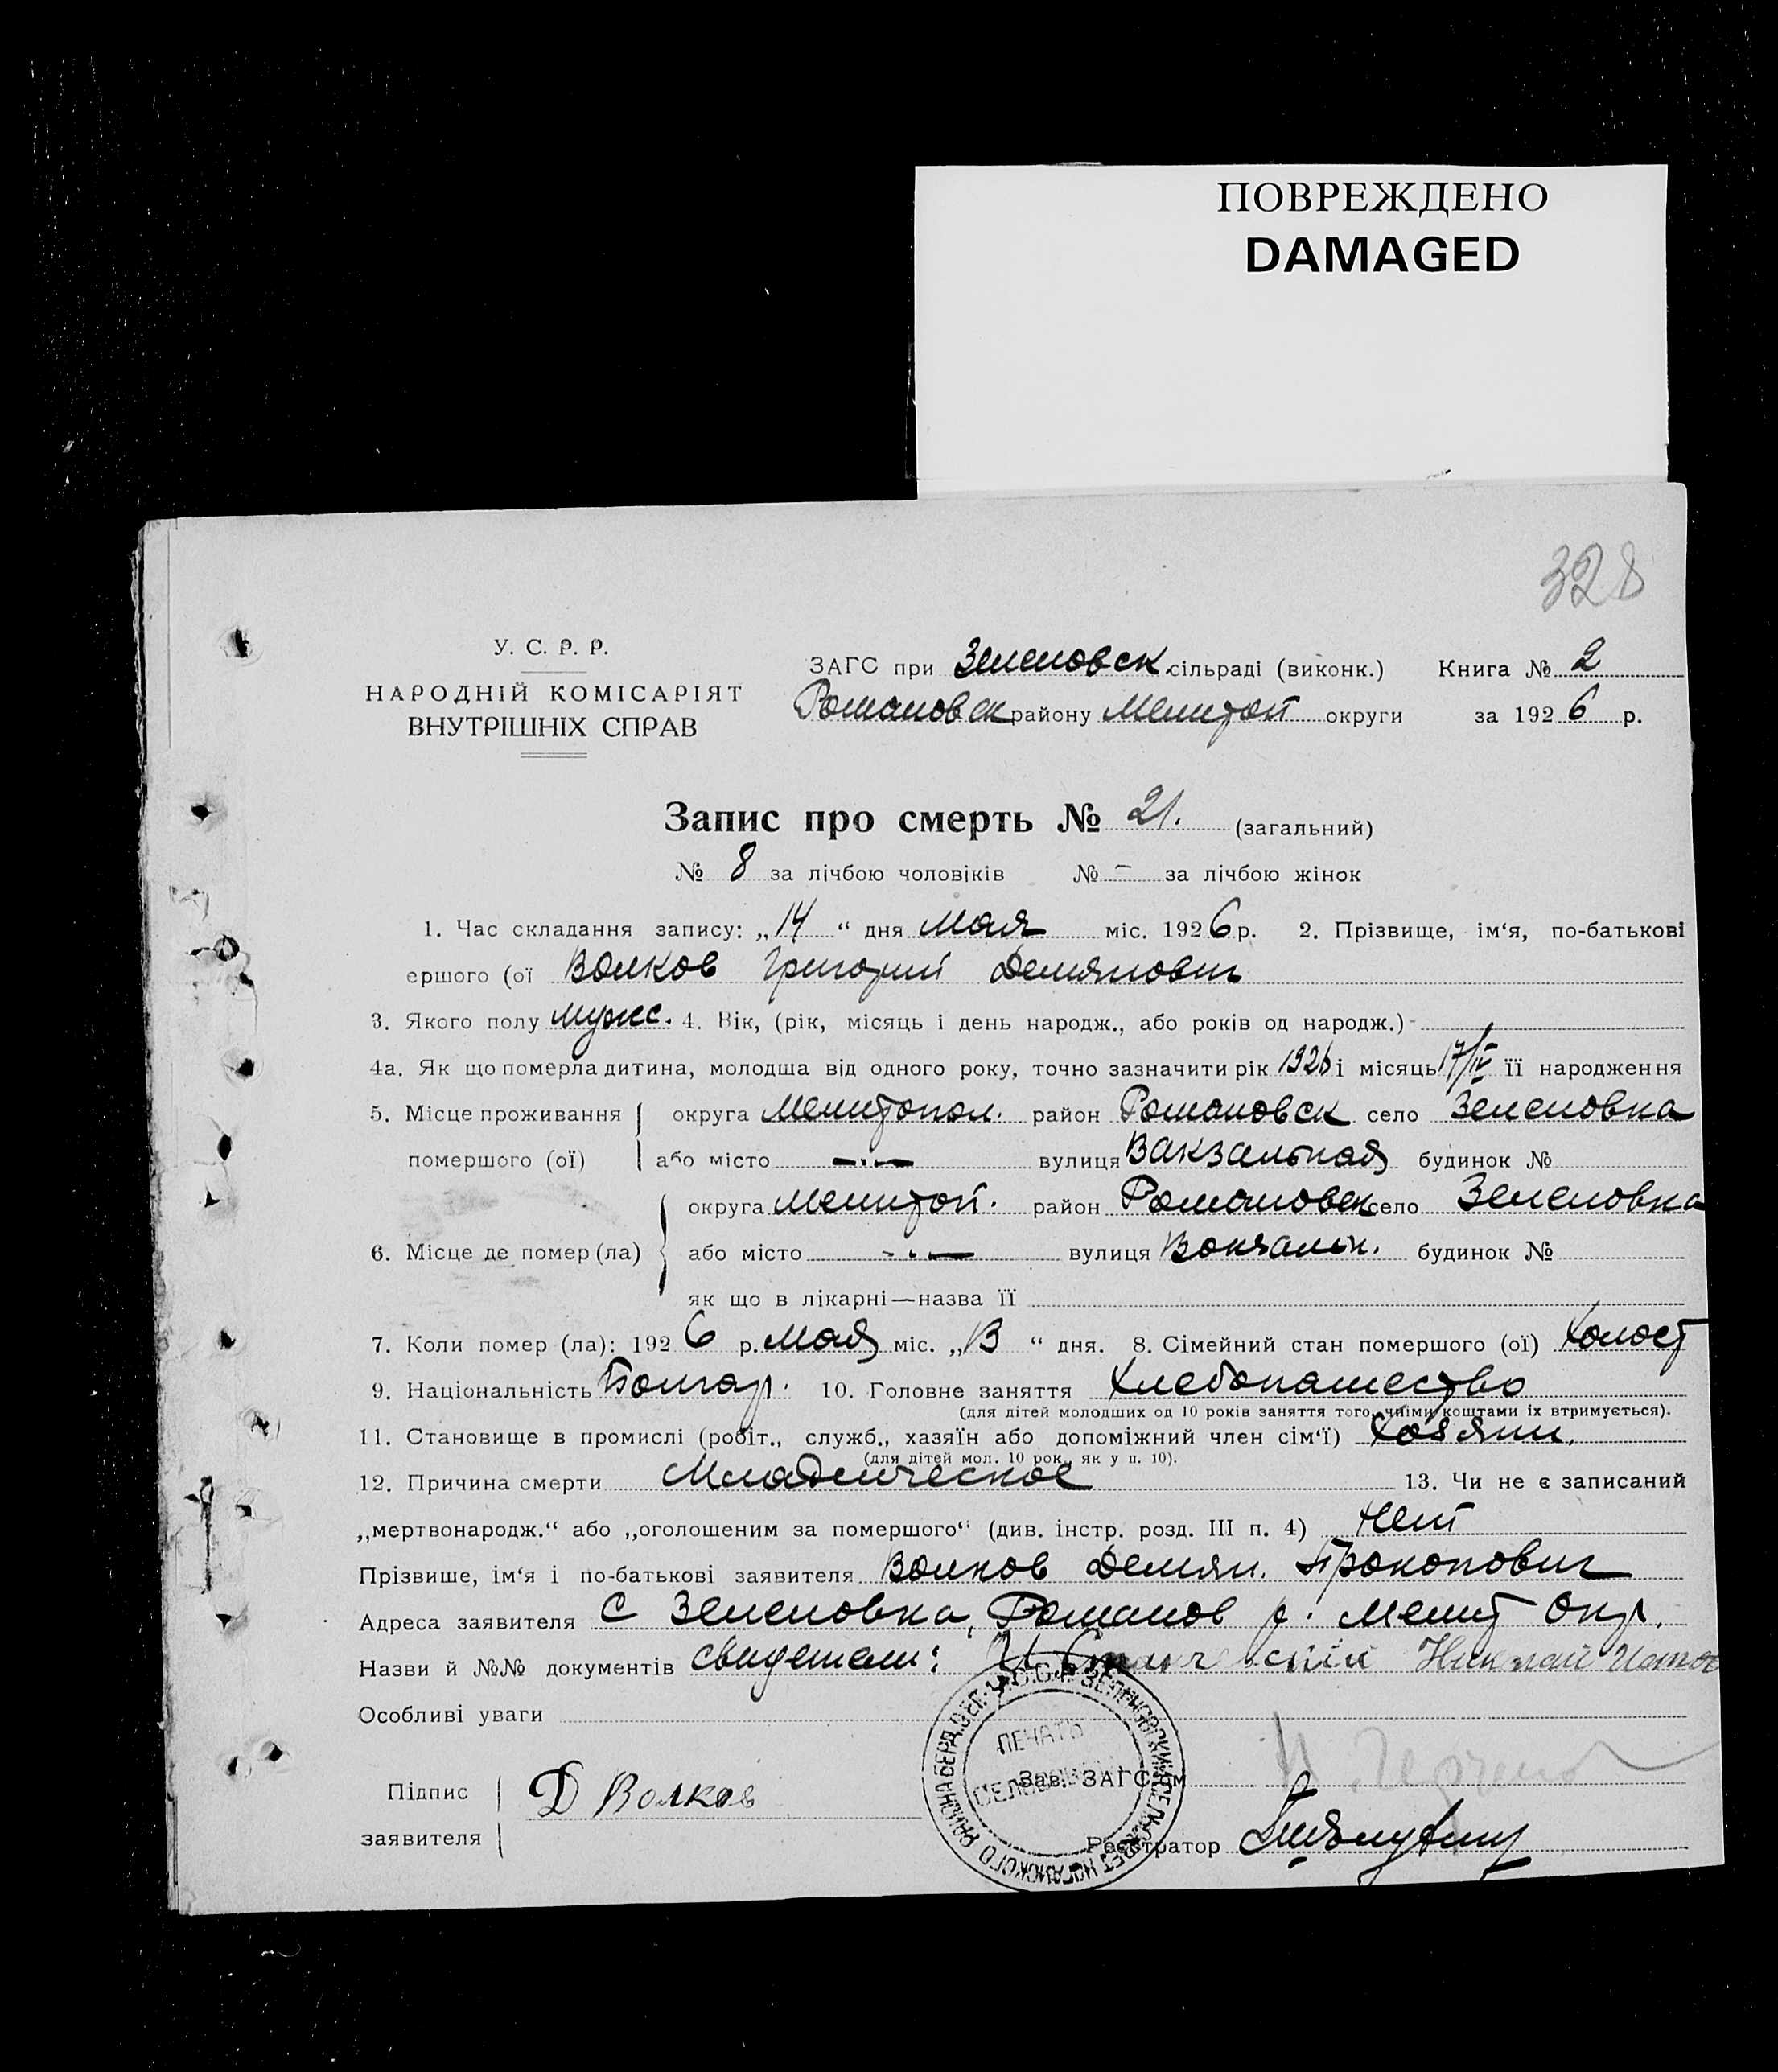 ПОВРЕЖДЕНО
DAMAGED
328
У. С. Р. Р.
НАРОДНІЙ КОМІСАРІЯТ
ВНУТРІШНІХ СПРАВ
ЗАГС при Зеленовск сільраді (виконк.) Книга № 2
Романовск району Мелитоп округи за 1926 р.
Запис про смерть № 21. (загальний)
№ 8 за лічбою чоловіків № – за лічбою жінок
1. Час складання запису: „14“ дня мая міс. 1926 р. 2. Прізвище, ім‘я, по-батькові
ершого (ої Волков Григорий Демянович
3. Якого полу мужс. 4. Вік, (рік, місяць і день народж., або років од народж.) -
4а. Як що померла дитина, молодша від одного року, точно зазначити рік 1926 і місяць 17/IV її народження
5. Місце проживання округа Мелитопол. район Романовск село Зеленовка
помершого (ої) або місто —„— вулиця Вакзальная будинок №
округа Мелитоп. район Романовск село Зеленовка
6. Місце де помер (ла) або місто —„— вулиця Вокзальн. будинок №
як що в лікарні—назва її
7. Коли помер (ла): 1926 р. мая міс. „13“ дня. 8. Сімейний стан помершого (ої) Холост
9. Національність Болгар. 10. Головне заняття Хлебопашество
(для дітей молодших од 10 років заняття того, чиїми коштами їх втримується).
11. Становище в промислі (робіт., служб., хазяїн або допоміжний член сім‘ї) Хозяин.
(для дітей мол. 10 рок., як у п. 10).
12. Причина смерти Младенческое 13. Чи не є записаний
„мертвонародж.“ або „оголошеним за помершого“ (див. інстр. розд. III п. 4) нет
Прізвище, ім‘я і по-батькові заявителя Волков Демян. Прокопович
Адреса заявителя С Зеленовка, Романов р. Мелит Окр.
Назви й №№ документів свидетели: Николай
Особливі уваги
ПЕЧАТЬ
Зав. ЗАГС‘ом
Підпис
заявителя
Д Волков
Реєстратор